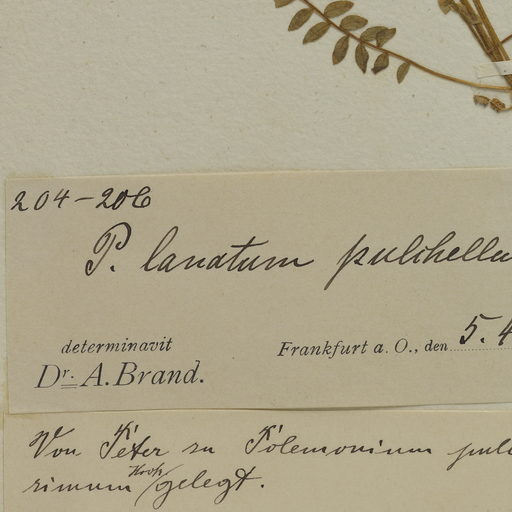 204-206
P. lanatum pulchellu
determinavit
Dr. A. Brand.
Frankfurt a. O., den 5. 4
Von Peter zu Polemonium pulc
rimum gelegt.